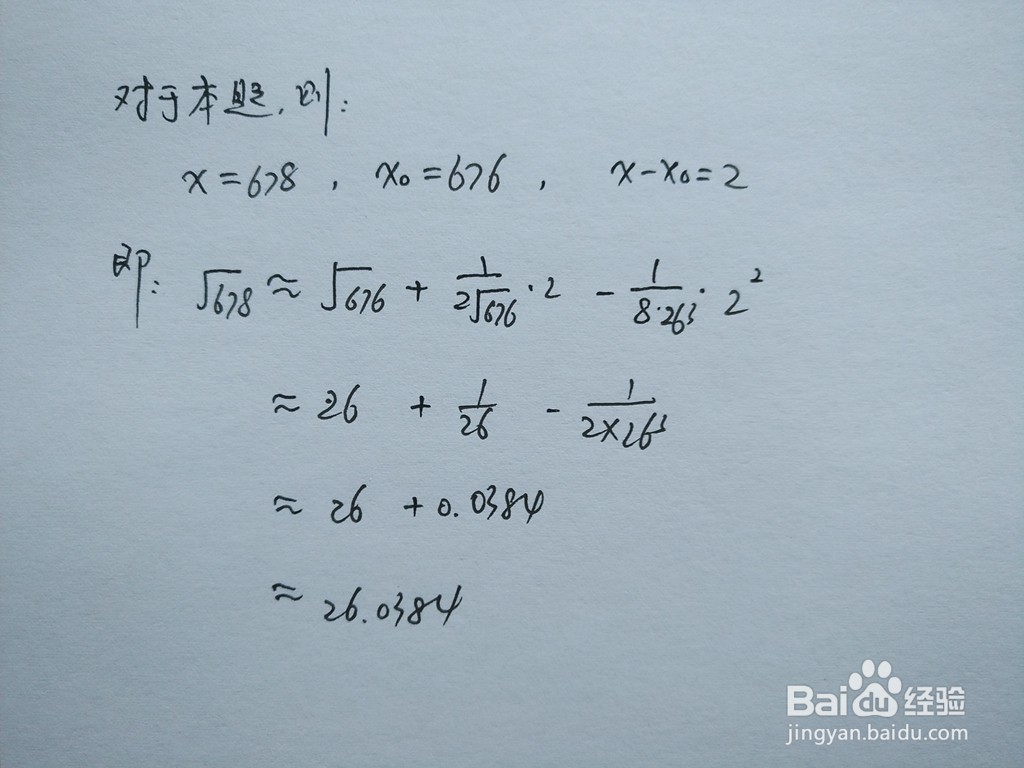 对于本题,则:
x=678, x₀=676, x-x₀=2
即: √678 ≈ √676 + 1/(2√676)·2 - 1/(8·26³)·2²
≈ 26 + 1/26 - 1/(2×26³)
≈ 26 + 0.0384
≈ 26.0384
Baidu经验
jingyan.baidu.com